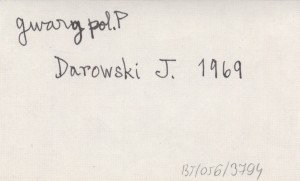 gwary pol. P
Darowski J. 1969
BJ/OJG/3794